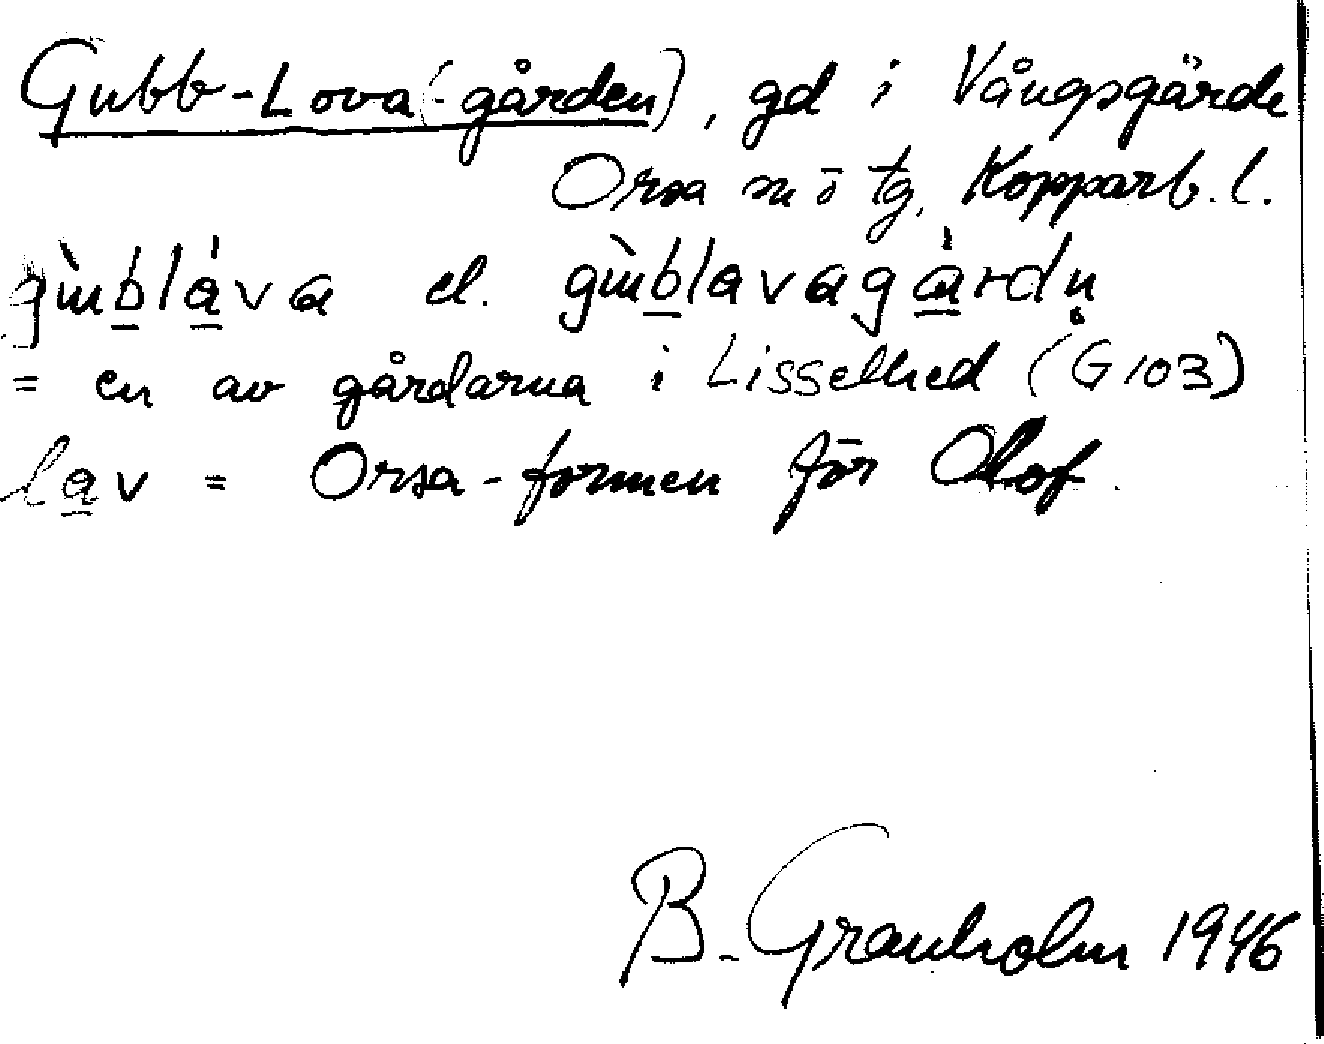 Gubb-Lova(-gården), gd i Vångsgärde
Orsa sn ö tg, Kopparb. l.
gùb̲lá̲va el. gùb̲lavagà̲rdn̥
= en av gårdarna i Lisselhed (G 103)
la̲v = Orsa-formen för Olof.
B. Granholm 1946